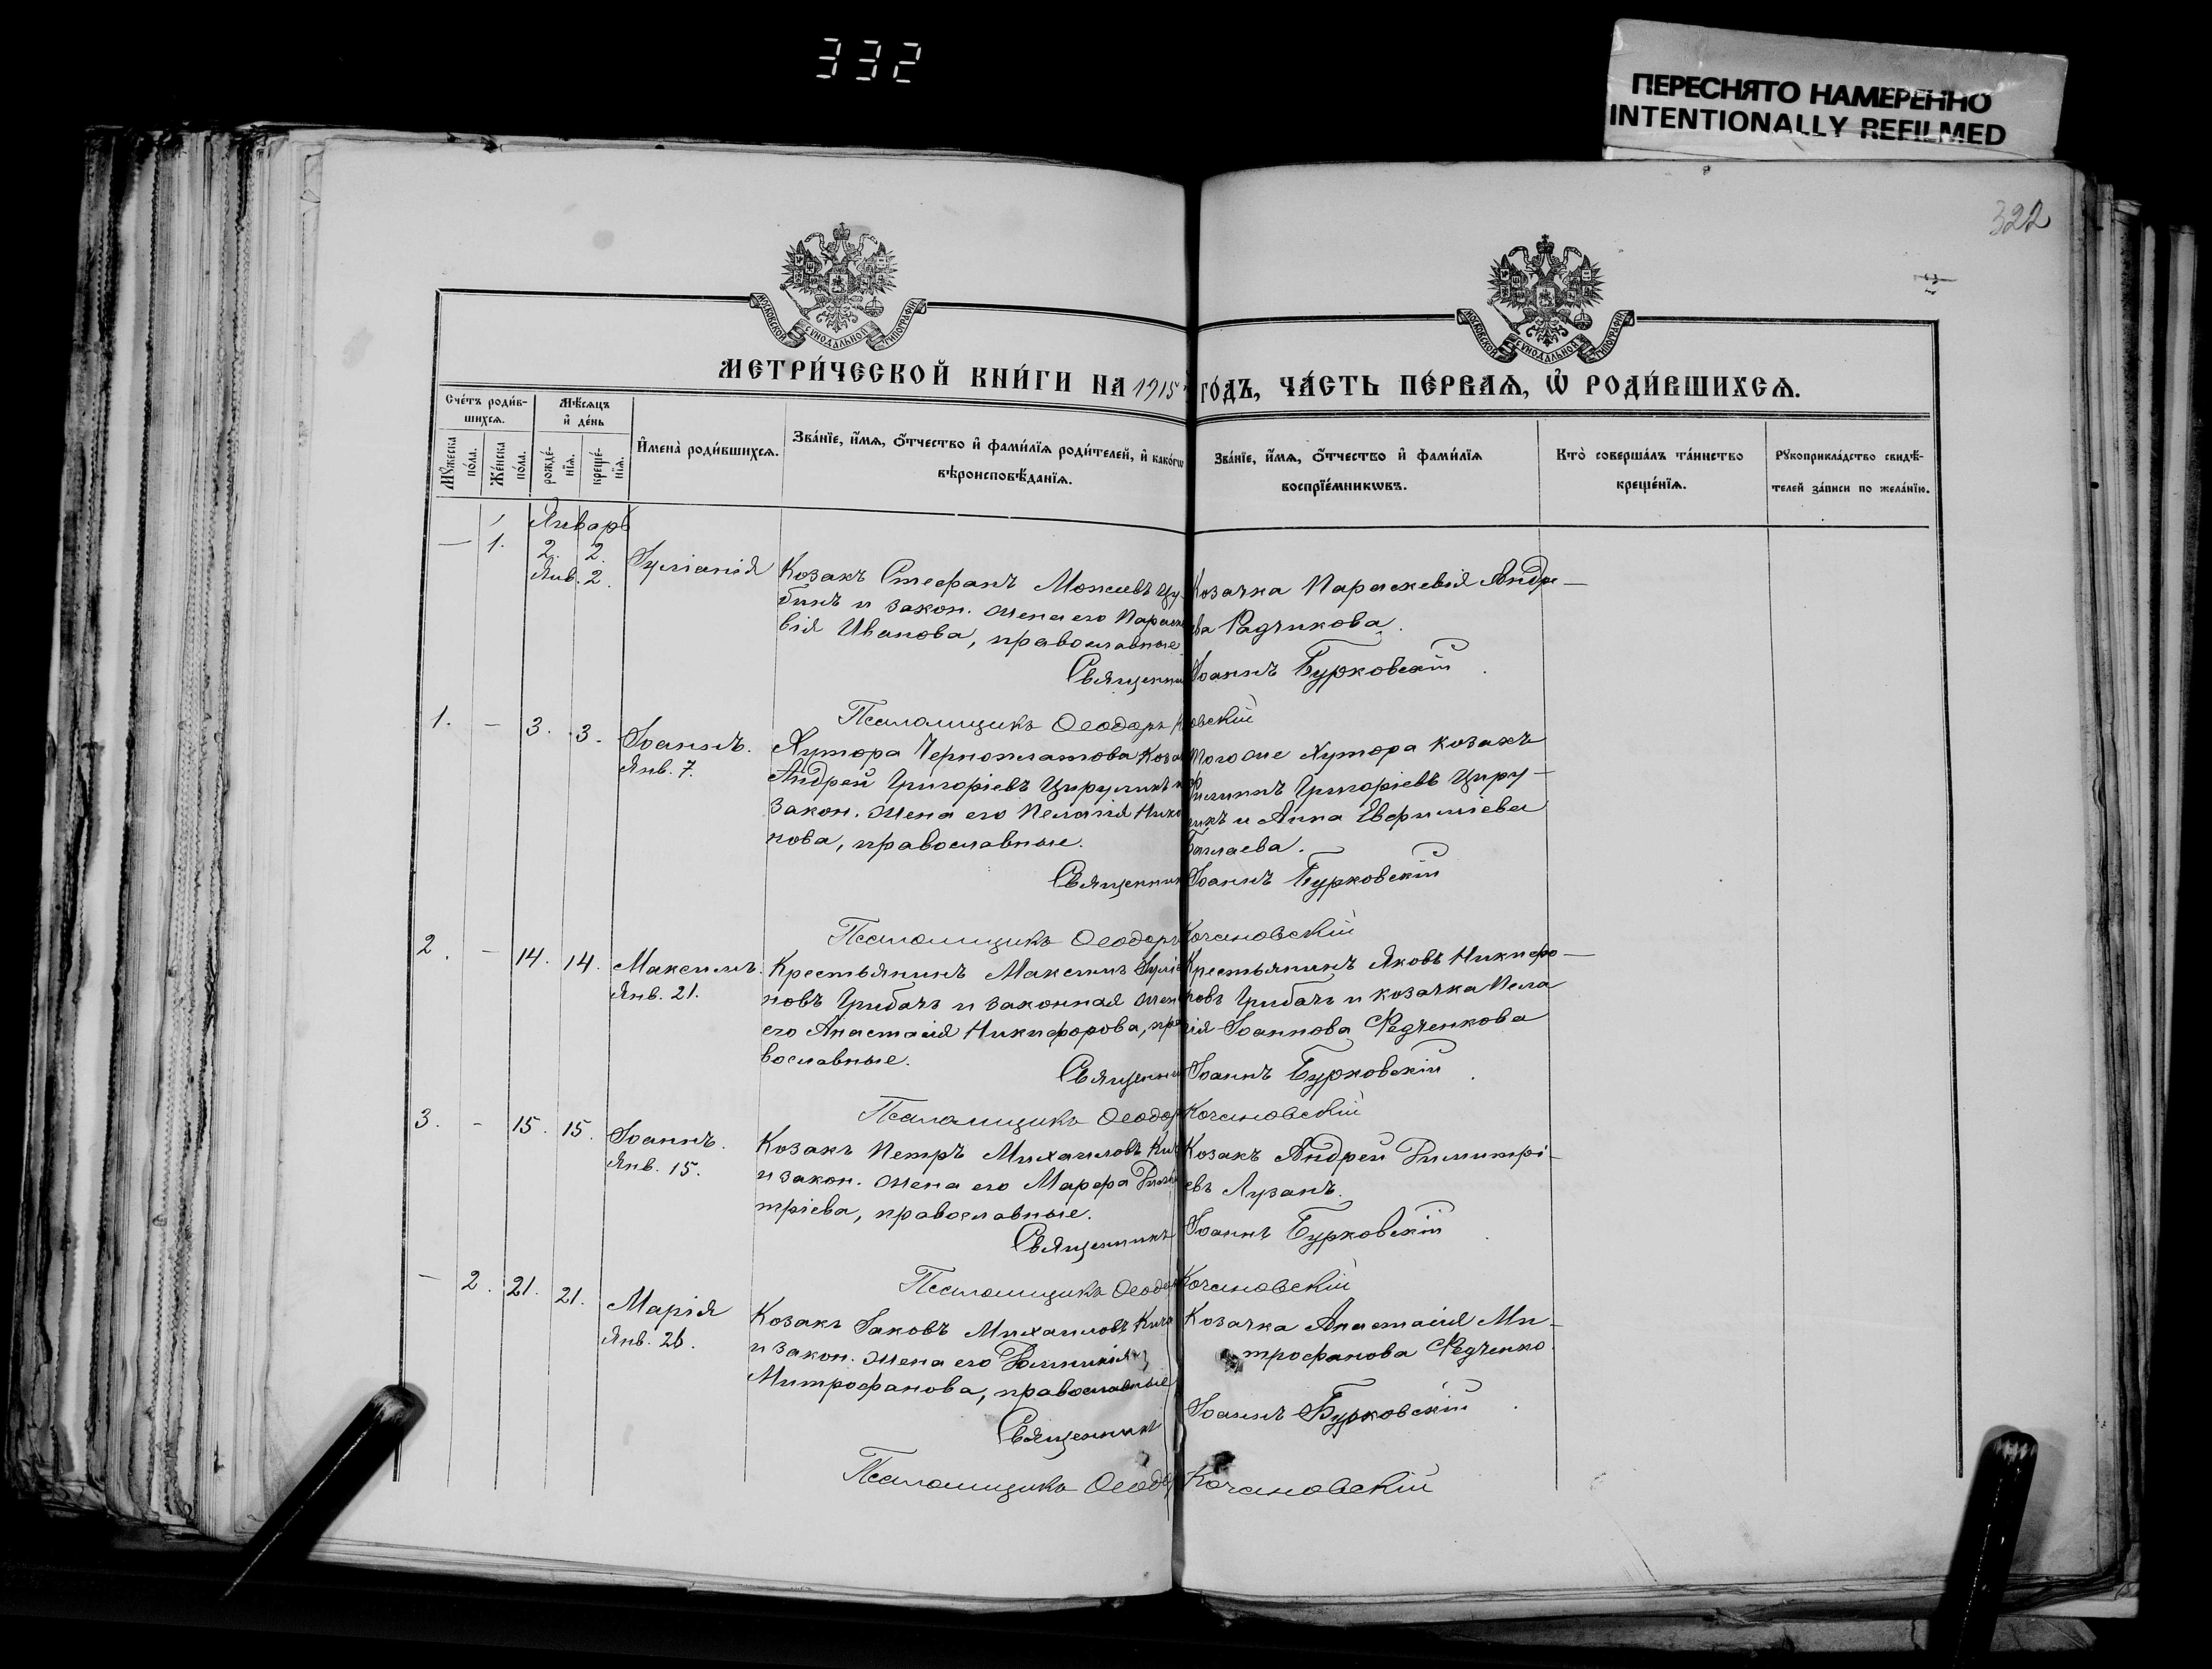 332
ПЕРЕСНЯТО НАМЕРЕННО
INTENTIONALLY REFILMED
322
МОСКОВСКОЙ СѴНОДАЛЬНОЙ ТИПОГРАФІИ
МОСКОВСКОЙ СѴНОДАЛЬНОЙ ТИПОГРАФІИ
МЕТРИ́ЧЕСКОЙ КНИ́ГИ НА 1915 ГО́ДЪ, ЧА́СТЬ ПЕ́РВАЯ, Ѡ҆ РОДИ́ВШИХСЯ.
Сче́тъ роди́в-
шихся.
Мꙋ́жеска по́ла.
Же́нска по́ла.
Мѣ́сяцъ и҆ де́нь
рожде́-
нїя.
креще́-
нїя.
И҆мена̀ роди́вшихся.
Зва́нїе, и҆́мя, ѻ҆́тчество и҆ фами́лїя роди́телей, и҆ како́гѡ
вѣроисповѣ́данїя.
Зва́нїе, и҆́мя, ѻ҆́тчество и҆ фами́лїя
воспрїе́мникѡвъ.
Кто̀ соверша́лъ та́инство
креще́нїя.
Рꙋкоприкла́дство свидѣ́-
телей за́писи по жела́нїю.
Январь
— 1. 2. 2.
Янв. 2.
Іуліанія
Козакъ Стефанъ
и закон. жена его Параске
вія Иванова, православные.
Козачка Параскевія Андре—
ева Радчикова.
Священник Іоаннъ Бурковскій
Псаломщикъ Ѳеодоръ овскій
1. — 3. 3.
Іоаннъ.
Янв. 7.
Хутора Черноплатова Коза
Андрей Григоріевъ Цируликъ и
закон. жена его Пелагія Нико
нова, православные.
того же Хутора козакъ
Филиппъ Григоріевъ Циру—
ликъ и Анна Евфиміева
Баглаева.
Священник Іоаннъ Бурковскій
Псаломщикъ Ѳеодоръ Кочановскій
2. — 14. 14.
Максимъ.
Янв. 21.
Крестьянинъ Максимъ Іуліа
новъ Грибачъ и законная жена
его Анастасія Никифорова, пра
вославные.
Крестьянинъ Яковъ Никифо—
ровъ Грибачъ и козачка Пела
гія Іоаннова Федченкова
Священник Іоаннъ Бурковскій
Псаломщикъ Ѳеодор Кочановскій
3. - 15. 15.
Іоаннъ.
Янв. 15.
Козакъ Петръ Михаиловъ
и закон. жена его Марфа Дими
тріева, православные.
Козакъ Андрей Димитрі—
евъ Лузанъ.
Священникъ Іоаннъ Бурковскій
Псаломщикъ Ѳеодор Кочановскій
— 2. 21. 21.
Марія
Янв. 26.
Козакъ Іаковъ Михаиловъ
и закон. жена его Домникія
Митрофанова, православные
Козачка Анастасія Ми—
трофанова Федченко.
Священникъ Іоаннъ Бурковскій
Псаломщикъ Ѳеодор Кочановскій